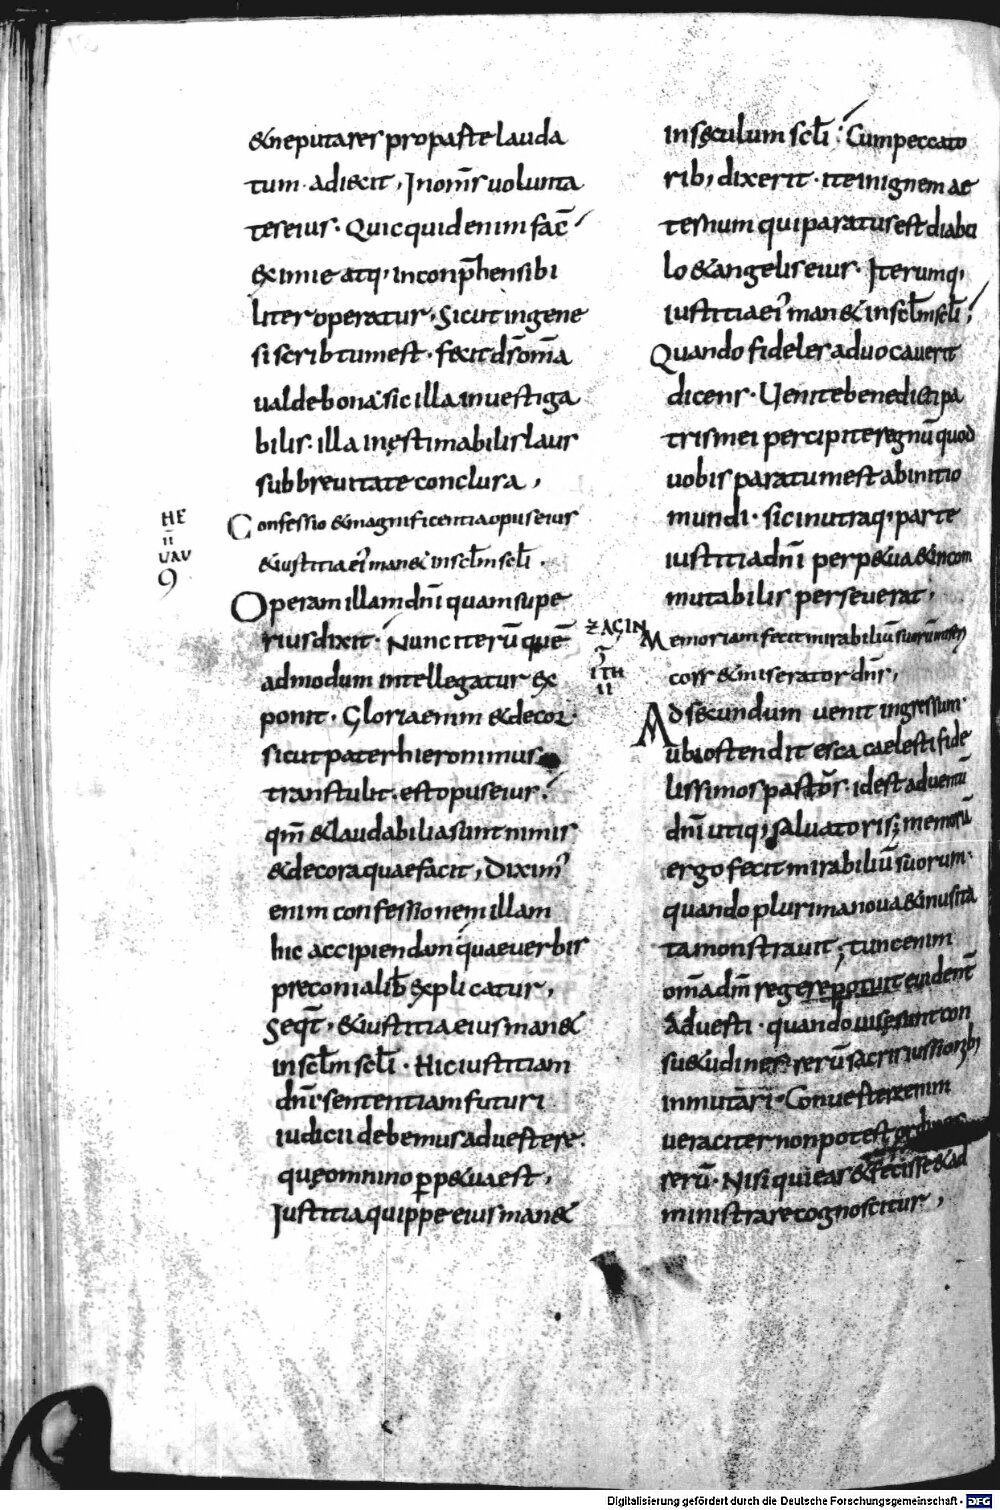 &neputares proparte lauda
tum · adiecit, In om̅s uolunta
tes eius · Quicquid enim fac̅
eximie atq; inconp̅hensibi
liter operatur, Sicut in gene
si scribtum est · fecit d̅s om̅a
ualde bona · sic illa inuestiga
bilis · illa inęstimabilis laus
sub breuitate conclusa,
HE
II
UAU
Confessio & magnificentia opus eius
& iustitia ei' man& in sc̅lm sc̅li ·
Operam illam dn̅i quam supe
rius dixit · Nunc iteru̅ que̅
admodum intellegatur ex
ponit · Gloria enim & decor ·
sicut pater hieronimus
transtulit · est opus eius ·
qm̅ & laudabilia sunt nimis
& decora quae facit, Dixim'
enim confessionem illam
hic accipiendam quae uerbis
preconialib; explicatur,
Seqt̅, & iustitia eius man&
in sc̅lm sc̅li · Hic iustitiam
dn̅i sententiam futuri
iudicii debemus aduertere
quę omnino p̱p&ua est,
Iustitia quippe eius man&
in sęculum sc̅li · Cum peccato
rib; dixerit · ite in ignem ae
ternum qui paratus est diabo
lo & angelis eius · Iterumq;
iustitia ei' man& in sc̅lm sc̅li,
Quando fideles aduocauerit
dicens · Uenite benedicti pa
tris mei percipite regnu̅ quod
uobis paratum est ab initio
mundi · sic in utraq; parte
iustitia dn̅i perp&ua & incom
mutabilis perseuerat,
ZAÇIN
ITH
II
Memoriam fecit mirabiliu̅ suoru̅ miseri
cors & miserator dn̅s,
Ad secundum uenit ingressum ·
ubi ostendit esca caelesti fide
lissimos past̅os · id est aduentu̅
dn̅i utiq; saluatoris; memoria̅
ergo fecit mirabiliu̅ suorum ·
quando plurima noua & inusita
ta monstrauit; tunc enim
om̅a dm̅ regere potuit euident̅
aduerti · quando uisę sunt con
su&udines reru̅ sacris iussionib;
inmutari · Conuerste enim
ueraciter non potest ordines
reru̅ · Nisi qui eas & fecisse & ad
ministrare cognoscitur,
Digitalisierung gefördert durch die Deutsche Forschungsgemeinschaft · DFG